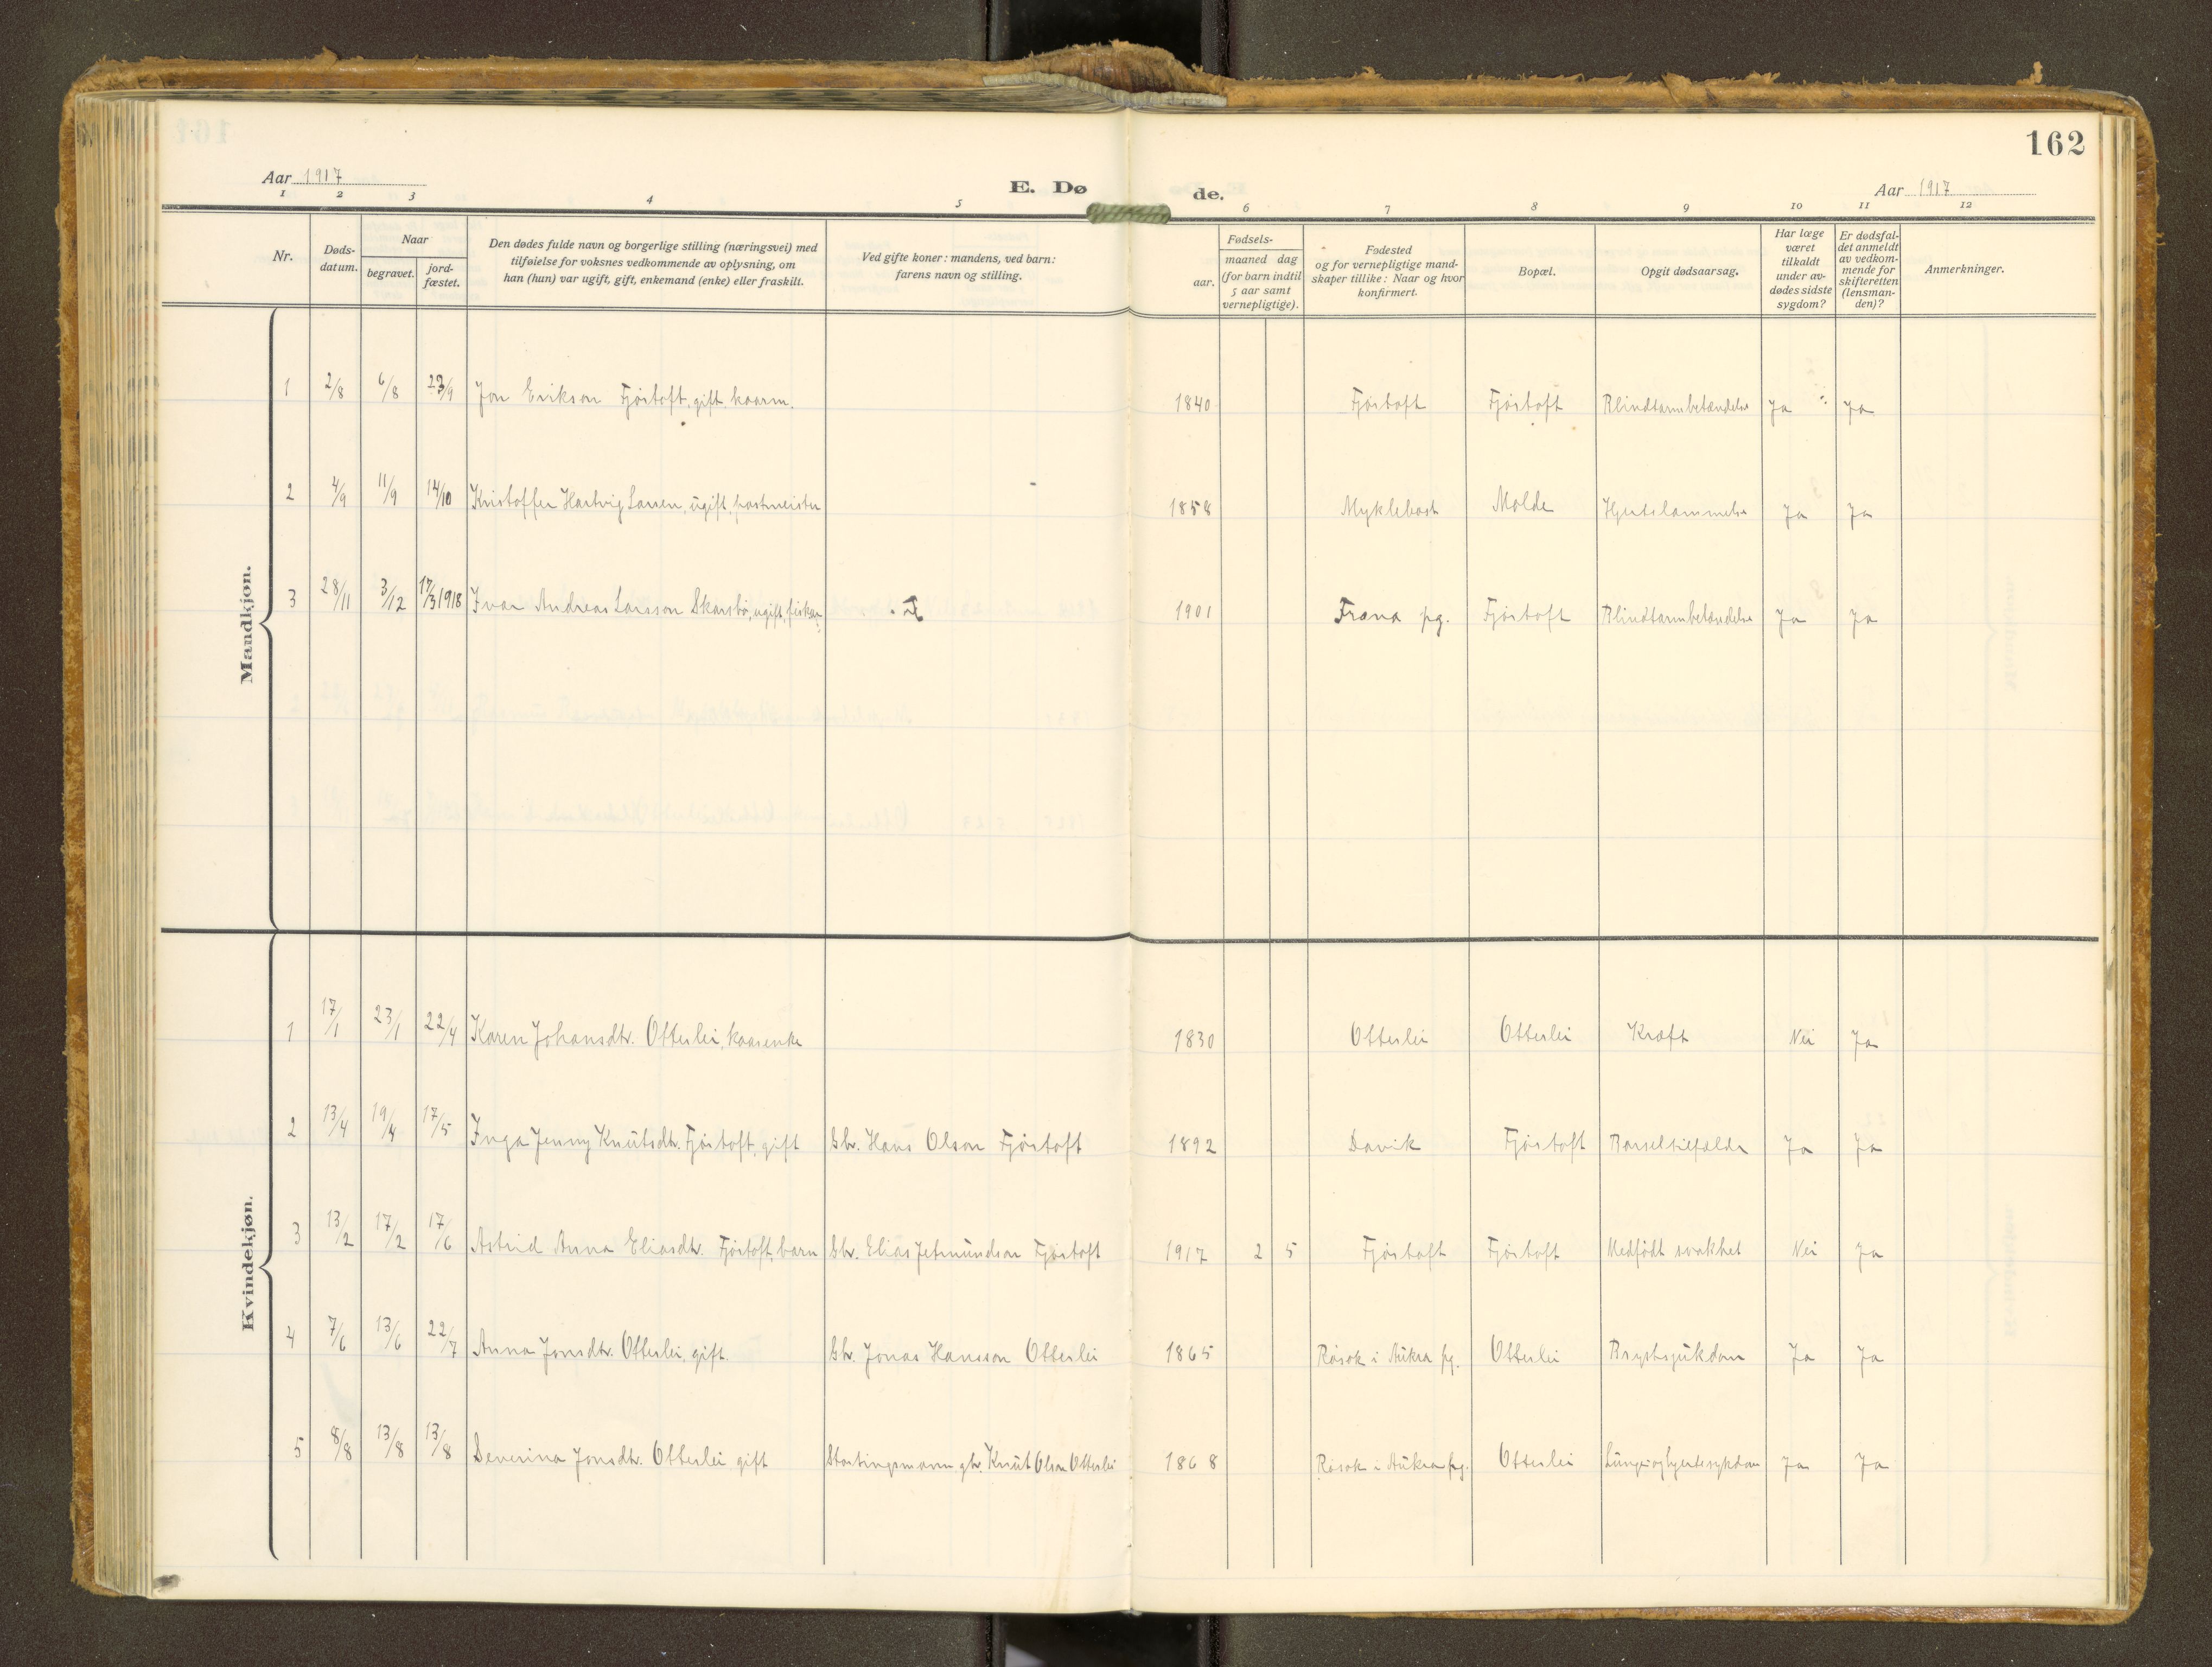 162
Aar 1917
E. Dø de.
Aar 1917
1 2 3 4 5 6 7 8 9 10 11 12
Nr.
Døds-
datum.
Naar
begravet.
jord-
fæstet.
Den dødes fulde navn og borgerlige stilling (næringsvei) med
tilføielse for voksnes vedkommende av oplysning, om
han (hun) var ugift, gift, enkemand (enke) eller fraskilt.
Ved gifte koner: mandens, ved barn:
farens navn og stilling.
Fødsels-
aar.
maaned dag
(for barn indtil
5 aar samt
vernepligtige).
Fødested
og for vernepligtige mand-
skaper tillike: Naar og hvor
konfirmert.
Bopæl.
Opgit dødsaarsag.
Har læge
været
tilkaldt
under av-
dødes sidste
sygdom?
Er dødsfal-
det anmeldt
av vedkom-
mende for
skifteretten
(lensman-
den)?
Anmerkninger.
Mandkjøn.
1 2/8 6/8 23/9 Jon Erikson Fjørtoft, gift, kaarm. 1840 Fjørtoft Fjørtoft Blindtarmbetændelse Ja Ja
2 4/9 11/9 14/10 Kristoffer Hartvig Larsen, ugift, postmeister 1858 Myklebost Molde Hjertelammelse Ja Ja
3 28/11 3/12 17/3 1918 Ivar Andreas Larsson Skarsbø, ugift, fiskar 1901 Fræna pg. Fjørtoft Blindtarmbetændelse Ja Ja
Kvindekjøn.
1 17/1 23/1 22/4 Karen Johansdtr. Otterlei, kaarenke 1830 Otterlei Otterlei Kræft Nei Ja
2 13/4 19/4 17/5 Inga Jenny Knutsdtr. Fjørtoft, gift Gbr. Hans Olson Fjørtoft 1892 Davik Fjørtoft Barseltilfælde Ja Ja
3 13/2 17/2 17/6 Astrid Anna Eliasdtr. Fjørtoft, barn Gbr. Elias Jetmundson Fjørtoft 1917 2 5 Fjørtoft Fjørtoft Medfødt svakhet Nei Ja
4 7/6 13/6 22/7 Anna Jonsdtr. Otterlei, gift. Gbr. Jonas Hansson Otterlei 1865 Røsok i Aukra pg. Otterlei Brystsjukdom Ja Ja
5 8/8 13/8 13/8 Severina Jonsdtr. Otterlei gift Stortingsmann, gbr. Knut Olson Otterlei 1868 Røsok i Aukra pg. Otterlei Lunge og hjertesykdom Ja Ja